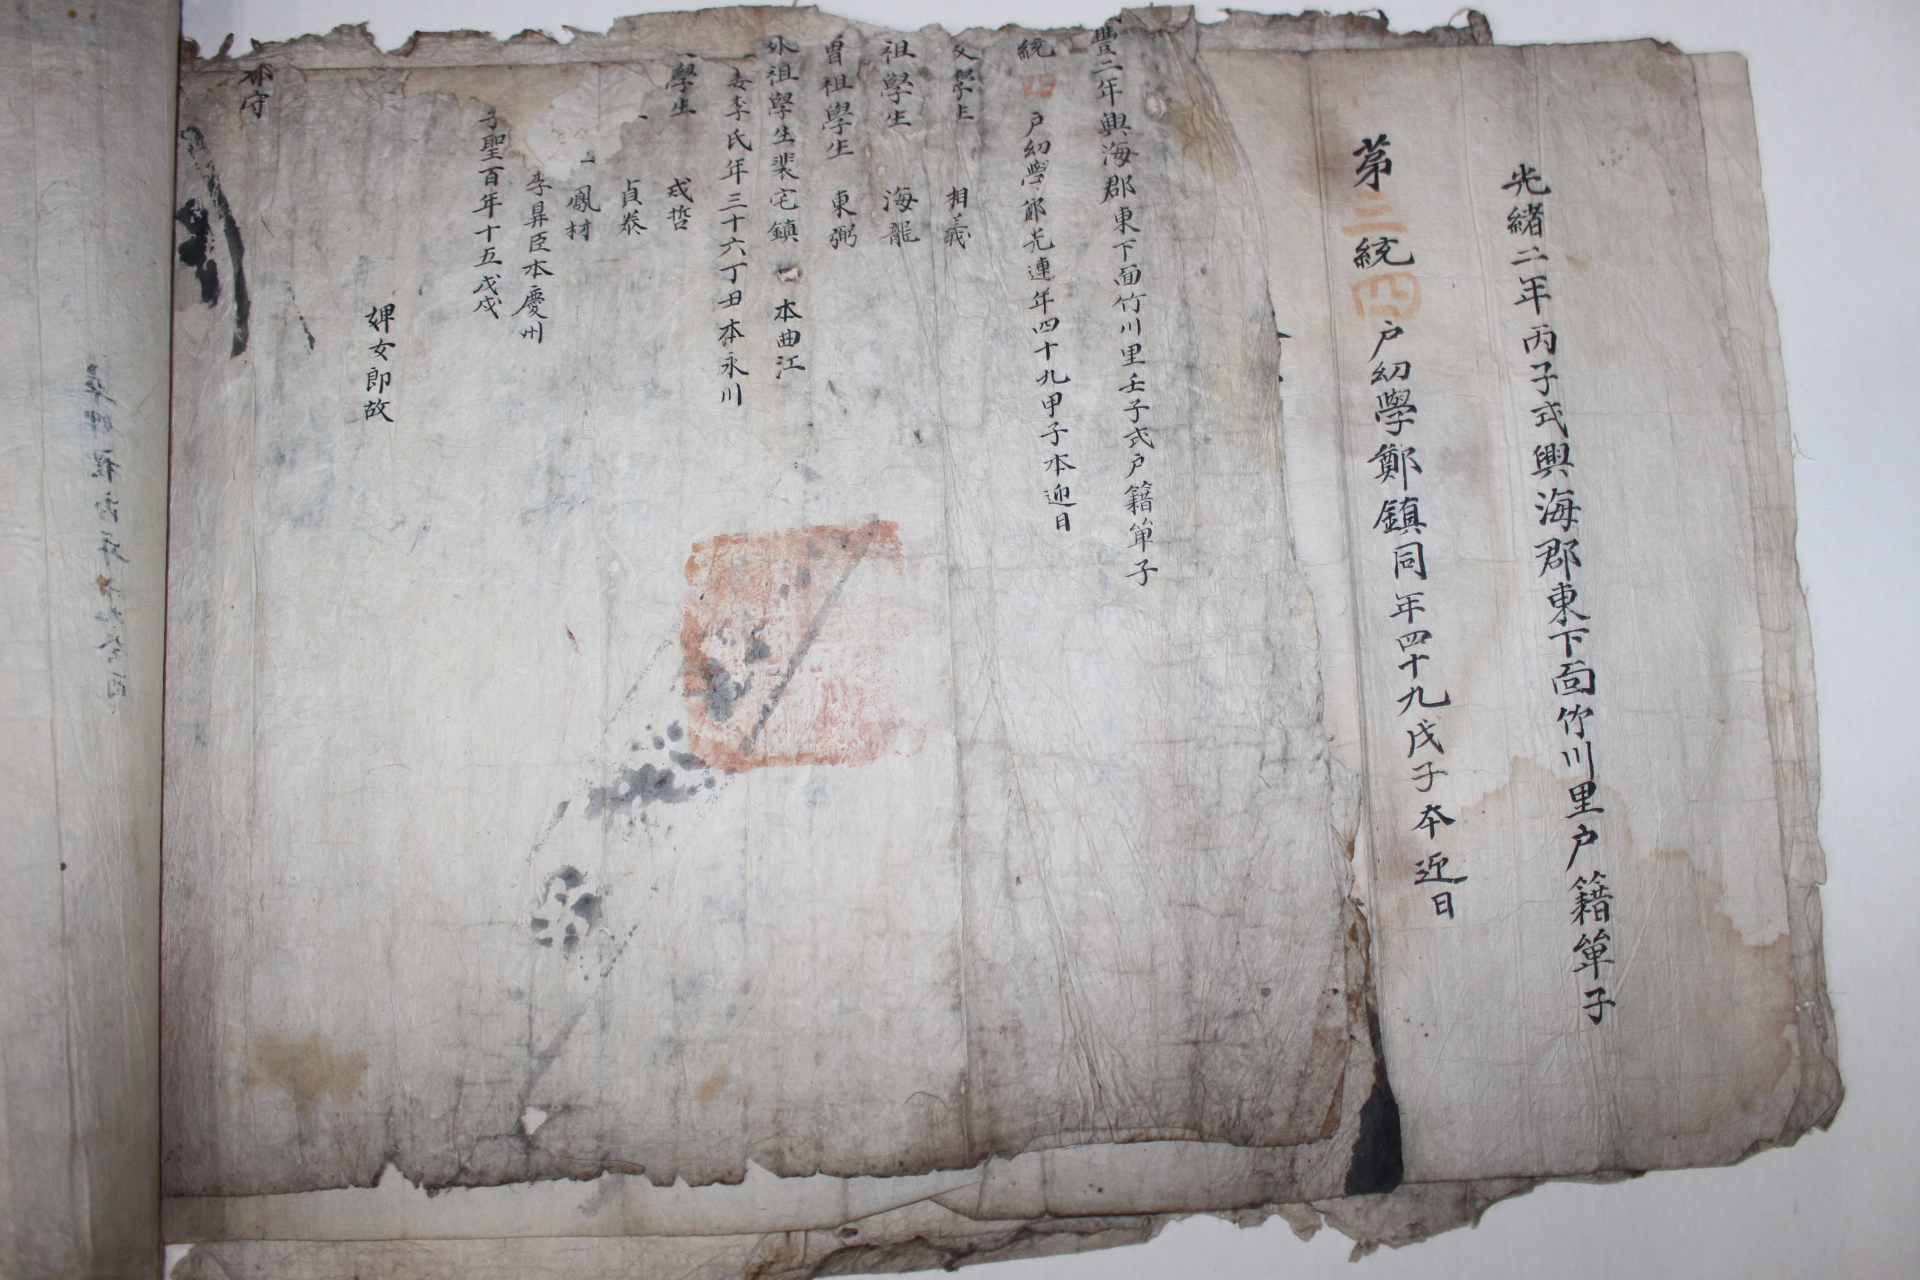 光緖二年丙子式興海郡東下面竹川里戶籍單子
第三統四戶幼學鄭鎭同年四十九戊子本迎日
豊二年興海郡東下面竹川里壬子式戶籍單子
統四戶幼學鄭光連年四十九甲子本迎日
父學生 相義
祖學生 海龍
曾祖學生 東弼
外祖學生裴宅鎭 本曲江
妻李氏年三十六丁丑本永川
學生 戎哲
貞泰
鳳材
李昇臣本慶州
子聖百年十五戊戌
婢女郞故
郡守